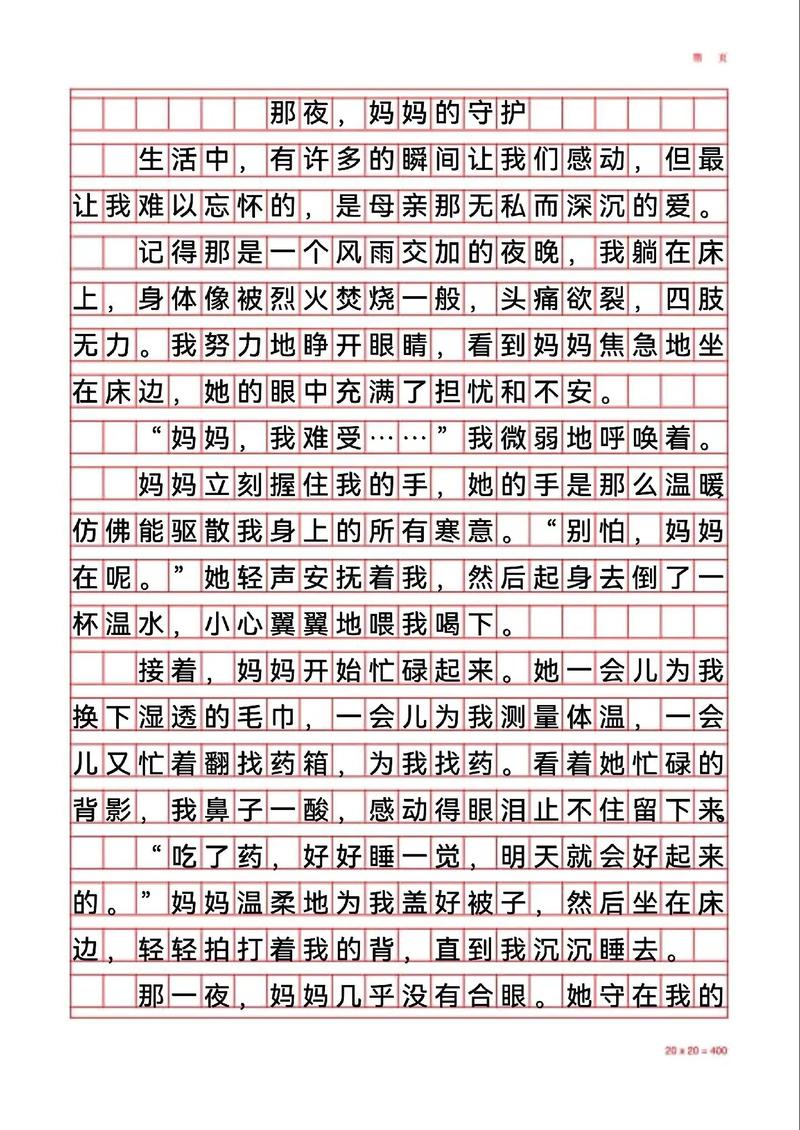 第 页
那夜，妈妈的守护
生活中，有许多的瞬间让我们感动，但最
让我难以忘怀的，是母亲那无私而深沉的爱。
记得那是一个风雨交加的夜晚，我躺在床
上，身体像被烈火焚烧一般，头痛欲裂，四肢
无力。我努力地睁开眼睛，看到妈妈焦急地坐
在床边，她的眼中充满了担忧和不安。
“妈妈，我难受……”我微弱地呼唤着。
妈妈立刻握住我的手，她的手是那么温暖，
仿佛能驱散我身上的所有寒意。“别怕，妈妈
在呢。”她轻声安抚着我，然后起身去倒了一
杯温水，小心翼翼地喂我喝下。
接着，妈妈开始忙碌起来。她一会儿为我
换下湿透的毛巾，一会儿为我测量体温，一会
儿又忙着翻找药箱，为我找药。看着她忙碌的
背影，我鼻子一酸，感动得眼泪止不住留下来。
“吃了药，好好睡一觉，明天就会好起来
的。”妈妈温柔地为我盖好被子，然后坐在床
边，轻轻拍打着我的背，直到我沉沉睡去。
那一夜，妈妈几乎没有合眼。她守在我的
20 x 20 = 400